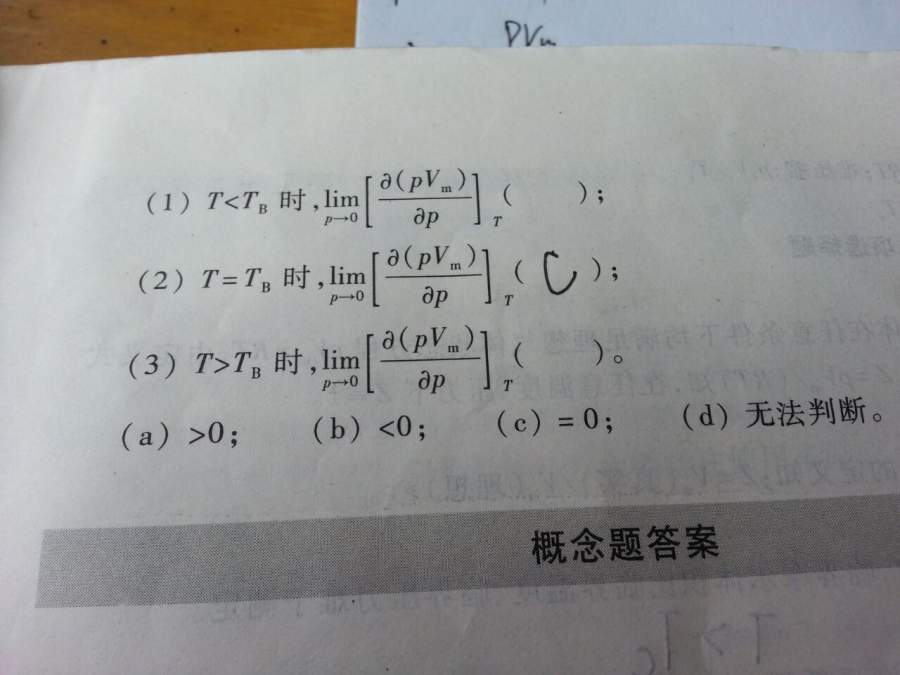 pVm
(1) T<T_B 时,lim_{p→0}[∂(pV_m)/∂p]_T ( );
(2) T=T_B 时,lim_{p→0}[∂(pV_m)/∂p]_T ( C );
(3) T>T_B 时,lim_{p→0}[∂(pV_m)/∂p]_T ( )。
(a) >0; (b) <0; (c) =0; (d) 无法判断。
概念题答案